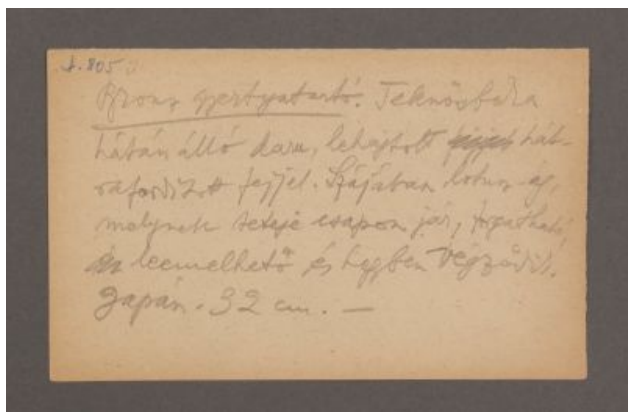 I. 805
Bronz gyertyatartó. Teknősbéka
hátán álló daru, lehajtott hát-
rafordított fejjel. Szájában lotusz ág,
melynek teteje csapon jár, forgatható,
leemelhető és hegyben végződik.
Japán. 32 cm. —